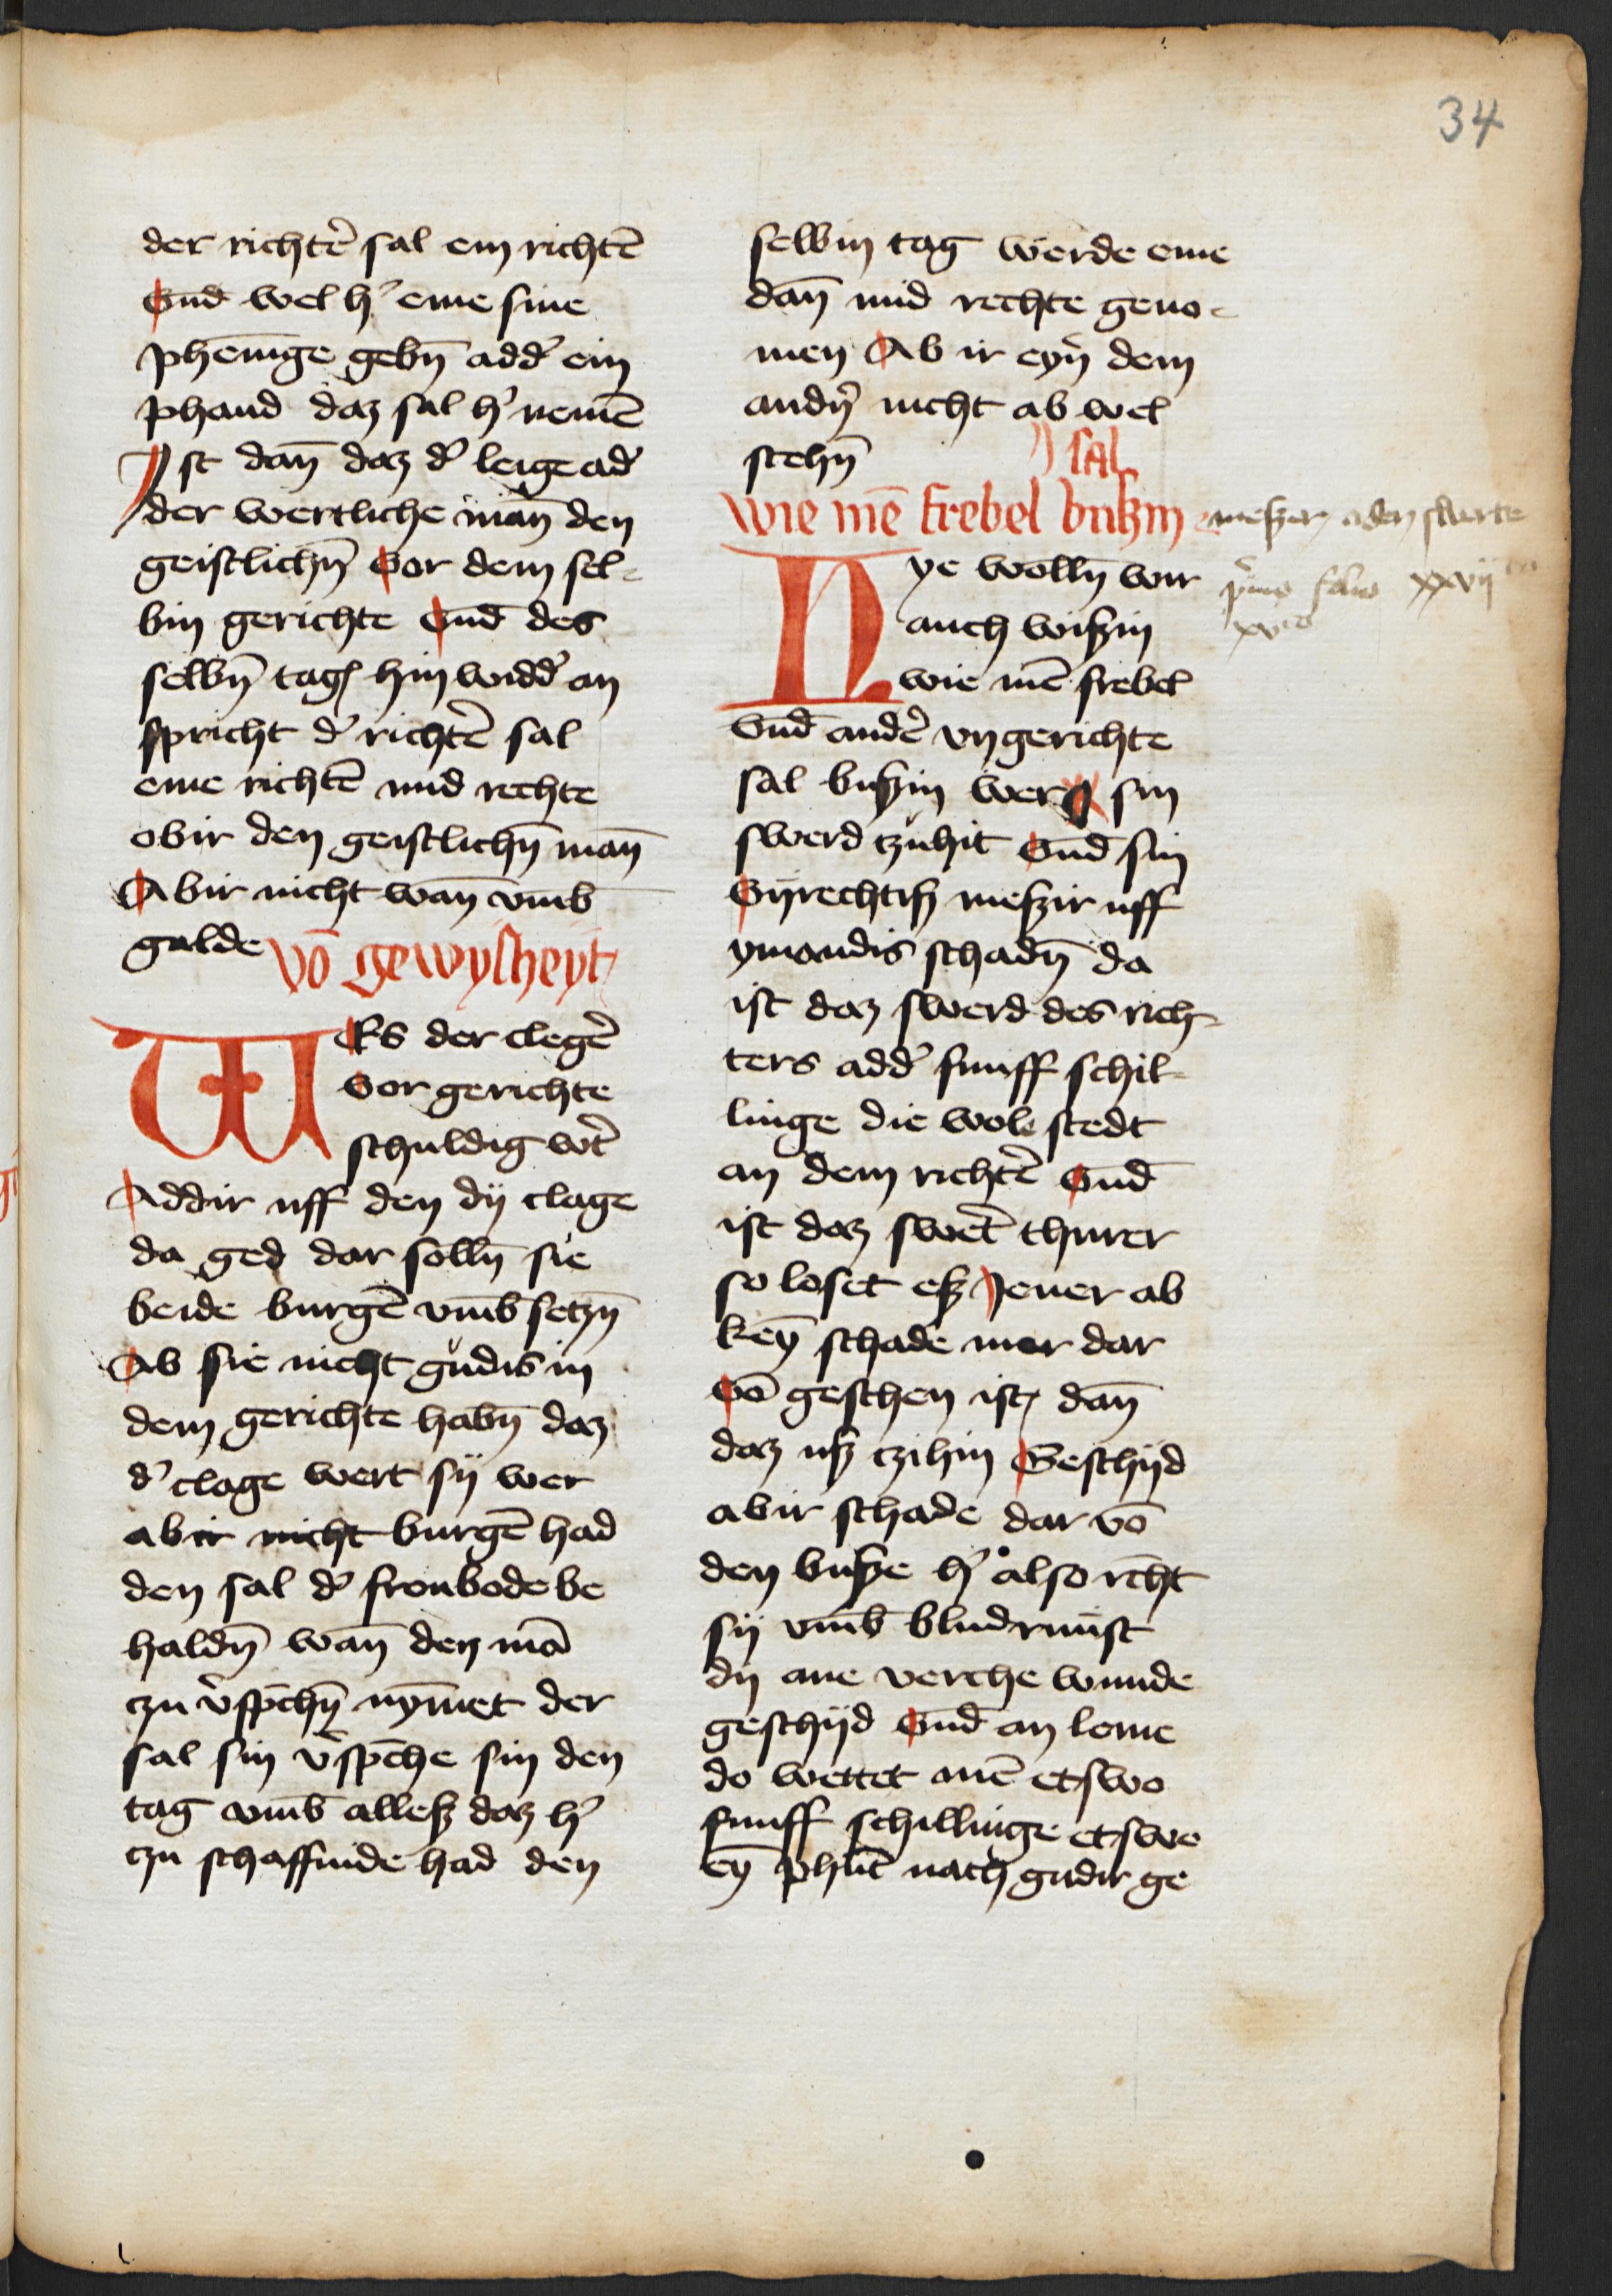 34
der richt᷑ sal em richtē
Vnd wel h᷑ eme sine
phēnige gebn̄ add᷑ ein
phand daz sal h᷑ nemē
Ist dan̄ daz d᷑ leige ad᷑
der wertliche man̄ den
geistlichn̄ Vor dem sel-
bin gerichte Vnd des
selbn̄ tags hin widd᷑ an
spricht d᷑ richt᷑ sal
eme richtē mid rechte
obir den geistlichn̄ man̄
Abir nicht wan̄ vm̄b
gulde vō gewysheyt
Wes der cleg᷑
vor gerichte
schuldig w᷑t
Addir uff den dij clage
da ged dar solln̄ sie
beide burgē vm̄b setzn̄
Ab sie nicht gudis in
dem gerichte habn̄ daz
d᷑ clage wert sij wer
abir nicht burgē had
den sal d᷑ fronbode be
haldn̄ wan̄ den mā
czu v᷑spchn̄ nym̄et der
sal sin v᷑spche sin den
tag vm̄b allesz daz h᷑
czu schaffinde had den
selbin tag werde eme
dan̄ mid rechte geno-
men Ab ir eyn̄ dem
andn̄ nicht ab wel
stehn̄
sal
wie mē frebel buszin
meszer aden swerte
Nye wolln̄ wir
xxvij
auch wiszin
wie mē frebel
Vnd and᷑ vngerichte
sal buszin wer sin
swerd czuhit Vnd sin
Vnrechtisz meszir uff
ymandis schadn̄ da
ist daz swerd des rich-
ters add᷑ funff schil-
linge die wole stedt
an dem richt᷑ Vnd
ist daz sw᷑et thurer
so loset esz Jener ab
keyn̄ schade mer dar
vō geschen ist dan̄
daz usz czihin Geschijd
abir schade dar vō
den busze h᷑ also rcht
sij vm̄b bludrunst
dij ane verche wunde
geschijd Vnd an leme
do wettet mē etswo
funff schillinge etswo
eyn̄ phūt nach gudir ge